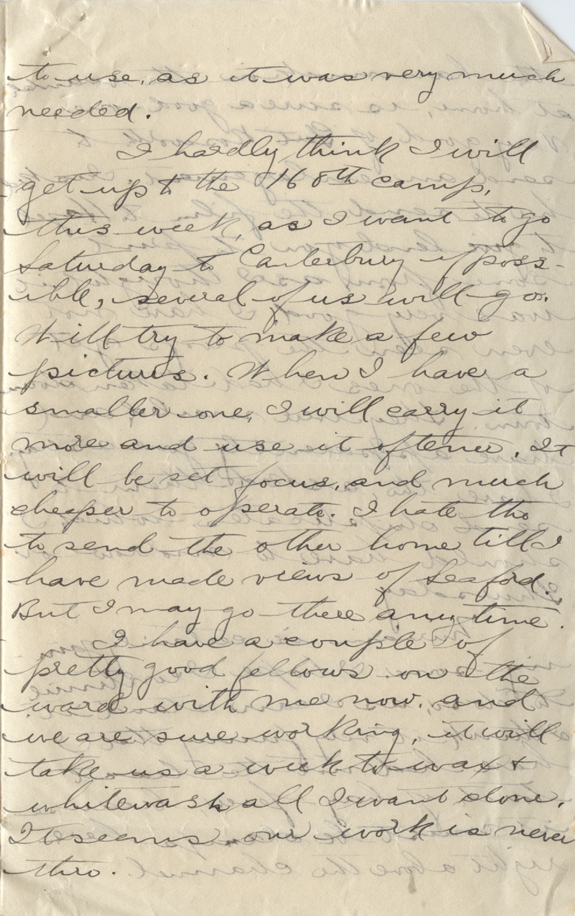 to use, as it was very much
needed.
I hardly think I will
get up to the 168th camp,
this week, as I want to go
Saturday to Canterbury if poss-
ible, several of us will go.
Will try to make a few
pictures. When I have a
smaller one, I will carry it
more and use it oftener. It
will be set focus, and much
cheaper to operate. I hate tho
to send the other home till I
have made views of Seaford.
But I may go there any time.
I have a couple of
pretty good fellows on the
ward with me now, and
we are sure working, it will
take us a week to wax +
whitewash all I want done.
It seems our work is never
thro.